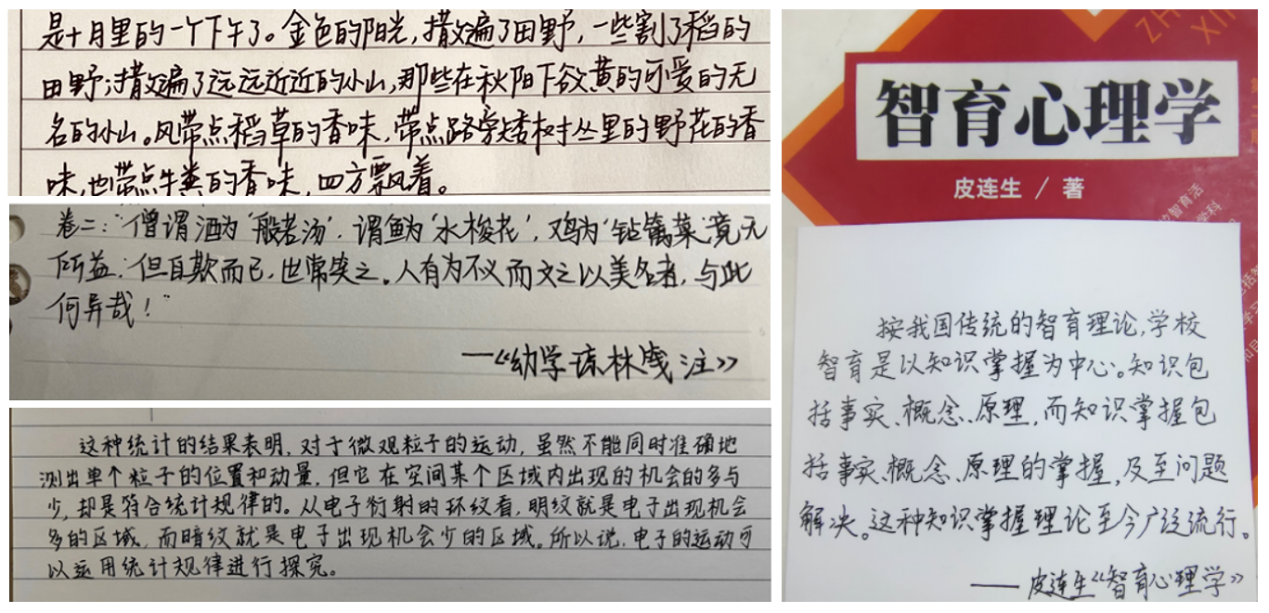 是十月里的一个下午了。金色的阳光，撒遍了田野，一些割了稻的
田野；撒遍了远远近近的小山，那些在秋阳下欲黄的可爱的无
名的小山。风带点稻草的香味，带点路旁矮树丛里的野花的香
味，也带点牛粪的香味，四方飘着。
卷二：“僧谓酒为‘般若汤’，谓鱼为‘水梭花’，鸡为‘钻篱菜’，竟无
所益，但自欺而已，世常笑之。人有为不义而文之以美名者，与此
何异哉！”
——《幼学琼林笺注》
这种统计的结果表明，对于微观粒子的运动，虽然不能同时准确地
测出单个粒子的位置和动量，但它在空间某个区域内出现的机会的多与
少，却是符合统计规律的。从电子衍射的环纹看，明纹就是电子出现机会
多的区域，而暗纹就是电子出现机会少的区域。所以说，电子的运动可
以运用统计规律进行探究。
智育心理学
皮连生 / 著
按我国传统的智育理论，学校
智育是以知识掌握为中心。知识包
括事实、概念、原理，而知识掌握包
括事实、概念、原理的掌握，及至问题
解决。这种知识掌握理论至今广泛流行。
——皮连生《智育心理学》